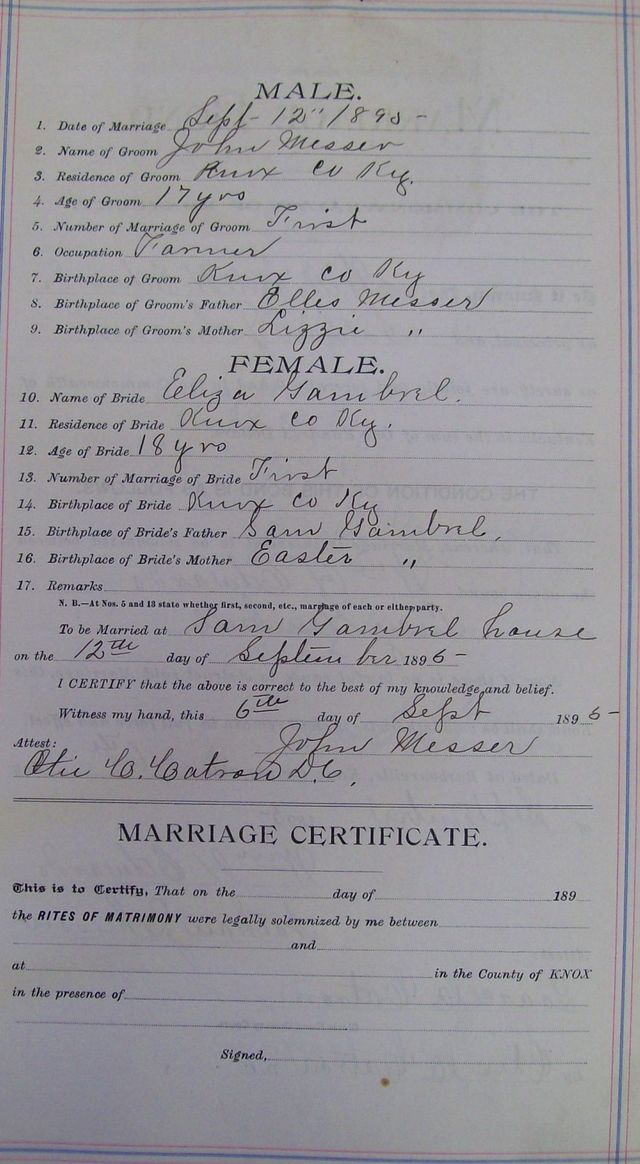 MALE.
1. Date of Marriage Sept 12" 1895
2. Name of Groom John Messer
3. Residence of Groom Knox Co Ky.
4. Age of Groom 17 yrs
5. Number of Marriage of Groom First
6. Occupation Farmer
7. Birthplace of Groom Knox Co Ky
8. Birthplace of Groom's Father Elles Messer
9. Birthplace of Groom's Mother Lizzie "
FEMALE.
10. Name of Bride Eliza Gambrel.
11. Residence of Bride Knox Co Ky.
12. Age of Bride 18 yrs
13. Number of Marriage of Bride First
14. Birthplace of Bride Knox Co Ky
15. Birthplace of Bride's Father Sam Gambrel.
16. Birthplace of Bride's Mother Easter "
17. Remarks
N. B.—At Nos. 5 and 13 state whether first, second, etc., marriage of each or either party.
To be Married at Sam Gambrel house
on the 12th day of September 1895
I CERTIFY that the above is correct to the best of my knowledge and belief.
Witness my hand, this 6th day of Sept 1895
John Messer
Attest:
C. Catron D.C.
MARRIAGE CERTIFICATE.
This is to Certify, That on the day of 189
the RITES OF MATRIMONY were legally solemnized by me between
and
at in the County of KNOX
in the presence of
Signed,